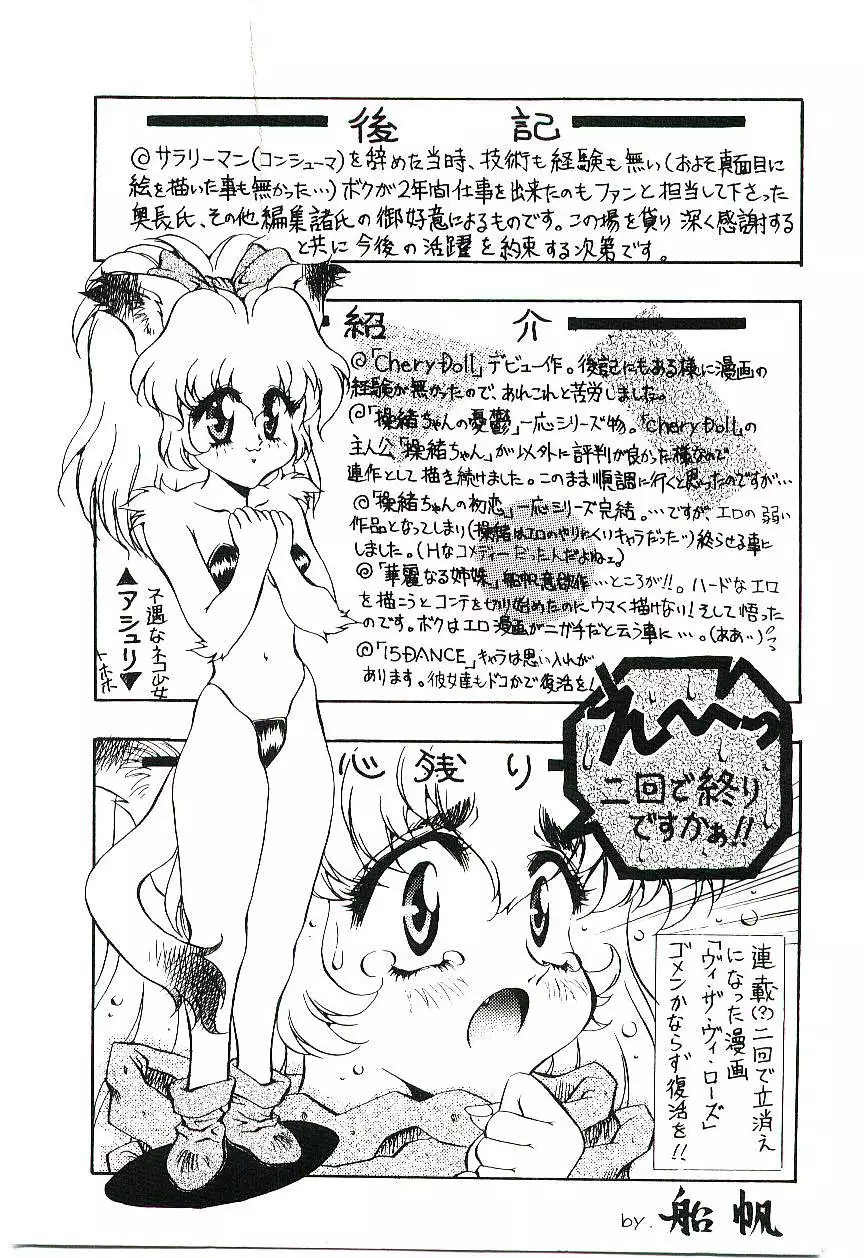 後記
◎サラリーマン(コンシューマ)を辞めた当時、技術も経験も無い(およそ真面目に
絵を描いた事も無かった…)ボクが2年間仕事を出来たのもファンと担当して下さった
奥長氏、その他編集諸氏の御好意によるものです。この場を貸り深く感謝する
と共に今後の活躍を約束する次第です。
紹介
◎「Chery Doll」デビュー作。後記にもある様に漫画の
経験が無かったので、あれこれと苦労しました。
◎「操緒ちゃんの憂鬱」一応シリーズ物。「Chery Doll」の
主人公「操緒ちゃん」が以外に評判が良かった様なので
連作として描き続けました。このまま順調に行くと思ったのですが…
◎「操緒ちゃんの初恋」一応シリーズ完結。…ですが、エロの弱い
作品となってしまり(操緒はエロのやりにくいキャラだった…)終らせる事に
しました。(Hなコメディーだったんだよねェ)
◎「華麗なる姉妹」船帆意欲作…ところが!!。ハードなエロ
を描こうとコンテを切り始めたのにウマく描けない!そして悟った
のです。ボクはエロ漫画がニガ手だと云う事に…。(ああ…)
◎「15DANCE」キャラは思い入れが
あります。彼女達もドコかで復活を!
▲アシュリ▼
不遇なネコ少女
トホホ
心残り
え〜〜っ
二回で終り
ですかぁ!!
連載(?)二回で立消え
になった漫画
「ヴィ・ザ・ヴィ・ローズ」
ゴメンかならず復活を!!
by.船帆